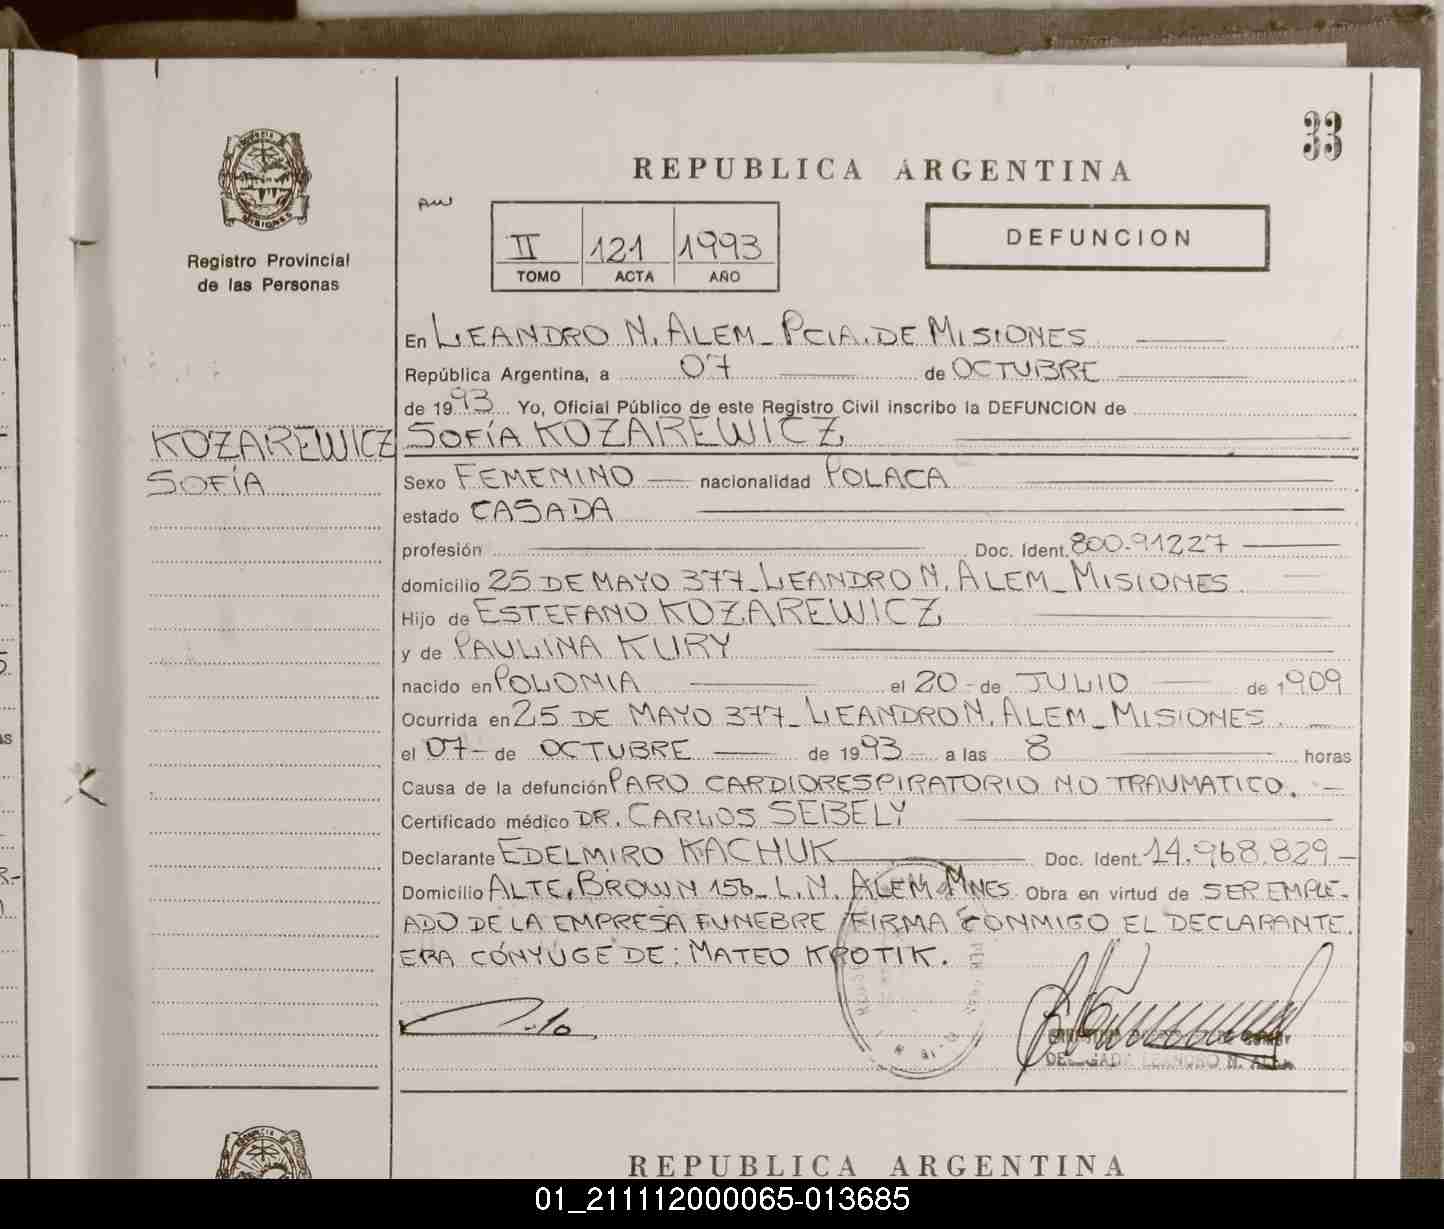 33
REPUBLICA ARGENTINA
MISIONES
Registro Provincial
de las Personas
II 121 1993
TOMO ACTA AÑO
DEFUNCION
En LEANDRO N. ALEM_PCIA. DE MISIONES
República Argentina, a 07 de OCTUBRE
de 1993 Yo, Oficial Público de este Registro Civil inscribo la DEFUNCION de
KOZAREWICZ
SOFÍA
SOFÍA KOZAREWICZ
Sexo FEMENINO nacionalidad POLACA
estado CASADA
profesión Doc. Ident. 800.91227
domicilio 25 DE MAYO 377_LEANDRO N. ALEM_MISIONES
Hijo de ESTEFANO KOZAREWICZ
y de PAULINA KURY
nacido en POLONIA el 20 - de JULIO de 1909
Ocurrida en 25 DE MAYO 377_LEANDRO N. ALEM_MISIONES
el 07 - de OCTUBRE de 1993 a las 8 horas
Causa de la defunción PARO CARDIORESPIRATORIO NO TRAUMATICO.
Certificado médico DR. CARLOS SEBELY
Declarante EDELMIRO KACHUK Doc. Ident. 14.968.829
Domicilio ALTE. BROWN 156_L.N. ALEM MNES. Obra en virtud de SER EMPLE-
ADO DE LA EMPRESA FUNEBRE FIRMA CONMIGO EL DECLARANTE.
ERA CÓNYUGE DE: MATEO KROTIK.
LEANDRO N. ALEM
REPUBLICA ARGENTINA
01_211112000065-013685